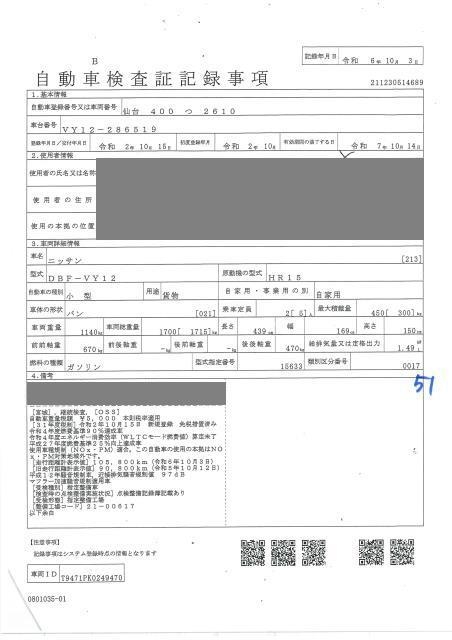 記録年月日 令和 6年 10月 3日
B
自動車検査証記録事項
211230514689
1.基本情報
自動車登録番号又は車両番号 仙台 400 つ 2610
車台番号 VY12-286519
登録年月日/交付年月日 令和 2年 10月 15日 初度登録年月 令和 2年 10月 有効期間の満了する日 令和 7年 10月 14日
2.使用者情報
使用者の氏名又は名称
使用者の住所
使用の本拠の位置
3.車両詳細情報
車名 ニッサン [213]
型式 DBF-VY12 原動機の型式 HR15
自動車の種別 小 型 用途 貨物 自家用・事業用の別 自家用
車体の形状 バン [021] 乗車定員 2[ 5]人 最大積載量 450[ 300]kg
車両重量 1140kg 車両総重量 1700[ 1715]kg 長さ 439cm 幅 169cm 高さ 150cm
前前軸重 670kg 前後軸重 -kg 後前軸重 -kg 後後軸重 470kg 総排気量又は定格出力 1.49
燃料の種類 ガソリン 型式指定番号 15633 類別区分番号 0017
4.備考
51
[宮城], 継続検査, [OSS]
自動車重量税額 ¥5,000 本則税率適用
[31年度税制] 令和2年10月15日 新規登録 免税措置済み
令和4年度燃費基準90%達成車
令和4年度エネルギー消費効率(WLTCモード燃費値)算定未了
平成27年度燃費基準25%向上達成車
使用車種規制(NOx・PM)適合, この自動車の使用の本拠はNO
x・PM対策地域外です。
[走行距離計表示値] 105,800km(令和6年10月3日)
[旧走行距離計表示値] 90,800km(令和5年10月12日)
平成12年騒音規制車, 近接排気騒音規制値 97dB
マフラー加速騒音規制適用車
[受検種別] 指定整備車
[検査時の点検整備実施状況] 点検整備記録簿記載あり
[受検形態] 指定整備工場
[整備工場コード] 21-00617
以下余白
【注意事項】
記録事項はシステム登録時点の情報となります
車両ID T9471PK0249470
0801035-01